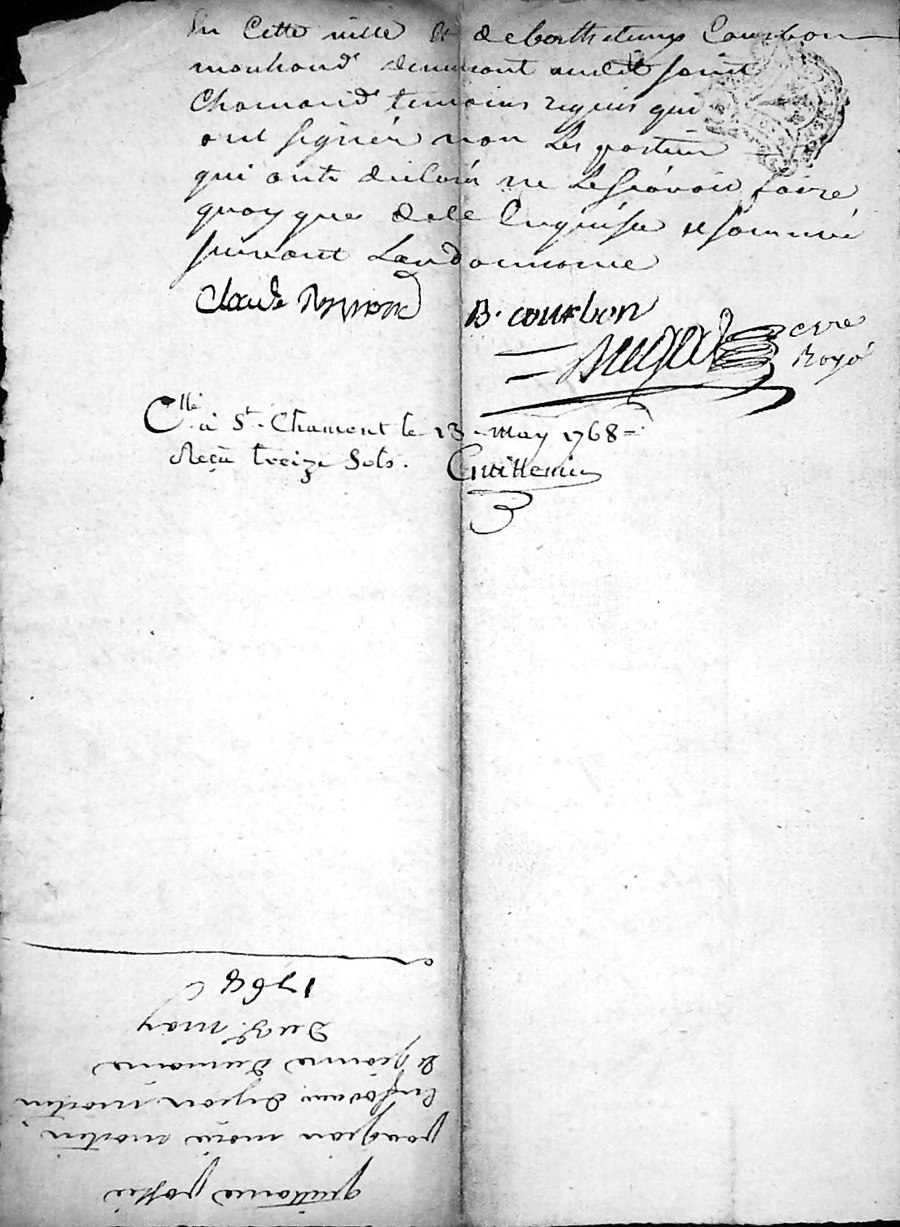 En Cette ville Et de barthelemy Courbon
marchand demeurant audit saint
Chamond temoins requis qui
ont signés non les parties
qui ont declaré ne le sçavoir faire
quoyque de ce Enquises et sommées
suivant Lordonnance
Claude Reymond B. courbon
nre
Royal
Cllé à St. Chamont le 13. may 1768
Reçu treize Sols. Guillemin
quittance passée
par jean marie martin
En faveur de jean martin
et jeanne
Du 9e. may
1768